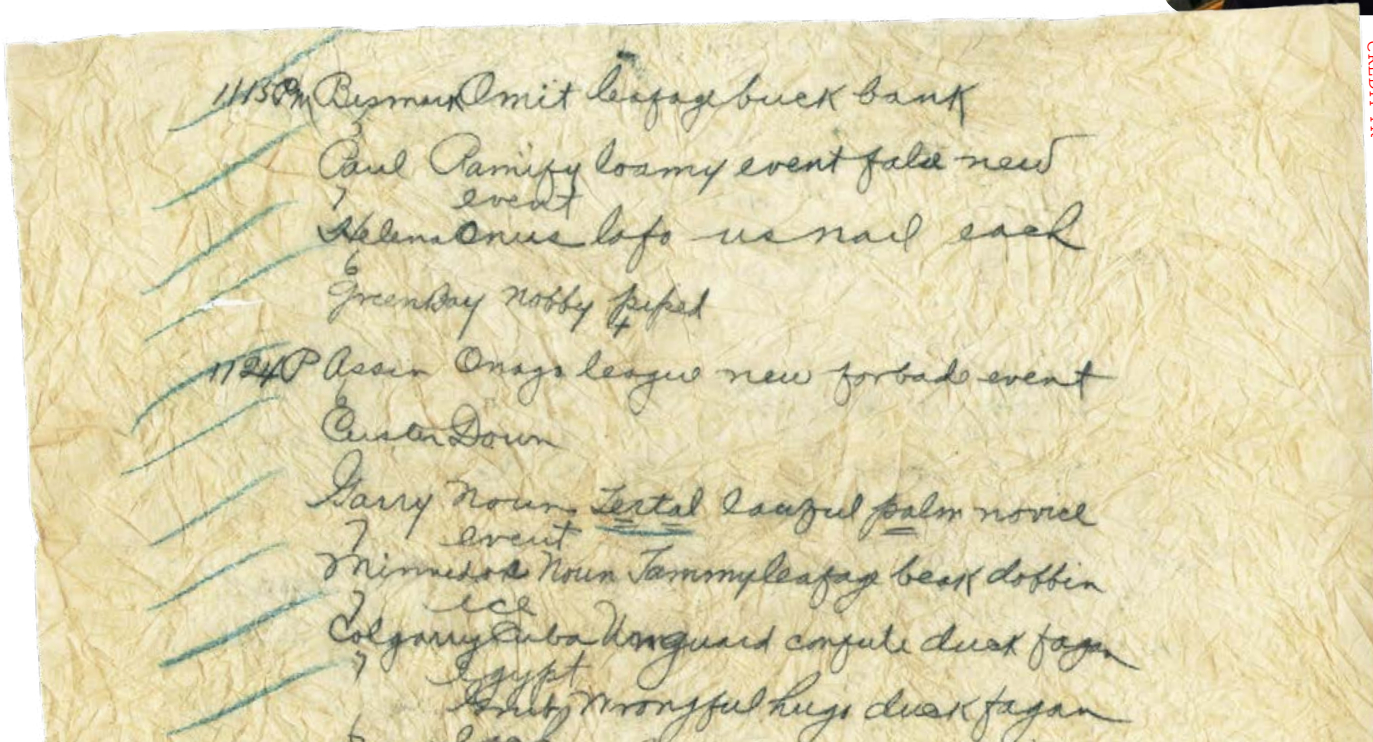 1113PM Bismark Omit leafage buck bank
Paul Ramify loamy event false new
7 event
Helena Onus lofo us nail each
6
Greenbay nobby piped
1124P Assin Onago league new forbade event
6
Custer Down
Garry Noun Tertal lawful palm novice
7 event
Minnedos Noun Jammy leafage beak dobbin
7 ice
Calgarry Cuba Unguard confute duck fagan
7 Egypt
wrongful hugo duck fagan